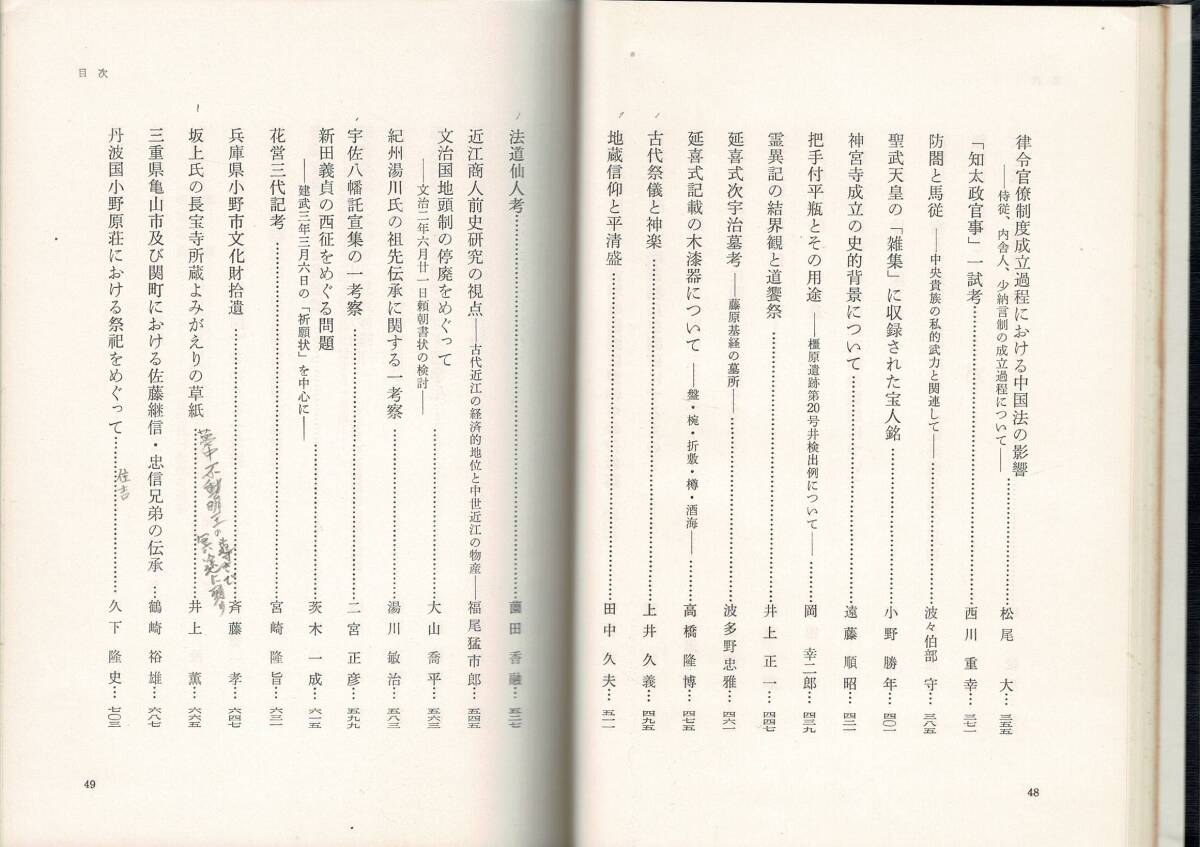 律令官僚制度成立過程における中国法の影響
――侍従、内舎人、少納言制の成立過程について―― 松尾 大… 三五五
「知太政官事」一試考 西川重幸… 三七一
防閤と馬従 ――中央貴族の私的武力と関連して―― 波々伯部 守… 三八五
聖武天皇の「雑集」に収録された宝人銘 小野勝年… 四〇一
神宮寺成立の史的背景について 遠藤順昭… 四二一
把手付平瓶とその用途 ――橿原遺跡第20号井検出例について―― 岡 幸二郎… 四三九
霊異記の結界観と道饗祭 井上正一… 四四七
延喜式次宇治墓考 ――藤原基経の墓所―― 波多野忠雅… 四六一
延喜式記載の木漆器について ――盤・椀・折敷・樽・酒海―― 高橋隆博… 四七五
古代祭儀と神楽 上井久義… 四九五
地蔵信仰と平清盛 田中久夫… 五一一
48
目次
法道仙人考 薗田香融… 五二七
近江商人前史研究の視点 ――古代近江の経済的地位と中世近江の物産―― 福尾猛市郎… 五四五
文治国地頭制の停廃をめぐって
――文治二年六月廿一日頼朝書状の検討―― 大山喬平… 五六三
紀州湯川氏の祖先伝承に関する一考察 湯川敏治… 五八三
宇佐八幡託宣集の一考察 二宮正彦… 五九九
新田義貞の西征をめぐる問題
――建武三年三月六日の「祈願状」を中心に―― 茨木一成… 六一五
花営三代記考 宮崎隆旨… 六三一
兵庫県小野市文化財拾遺 斉藤 孝… 六四七
坂上氏の長宝寺所蔵よみがえりの草紙 井上 薫… 六六五
夢中不動明王の導きで冥途に到り
三重県亀山市及び関町における佐藤継信・忠信兄弟の伝承 鶴崎裕雄… 六八七
丹波国小野原荘における祭祀をめぐって 久下隆史… 七〇三
住吉
49